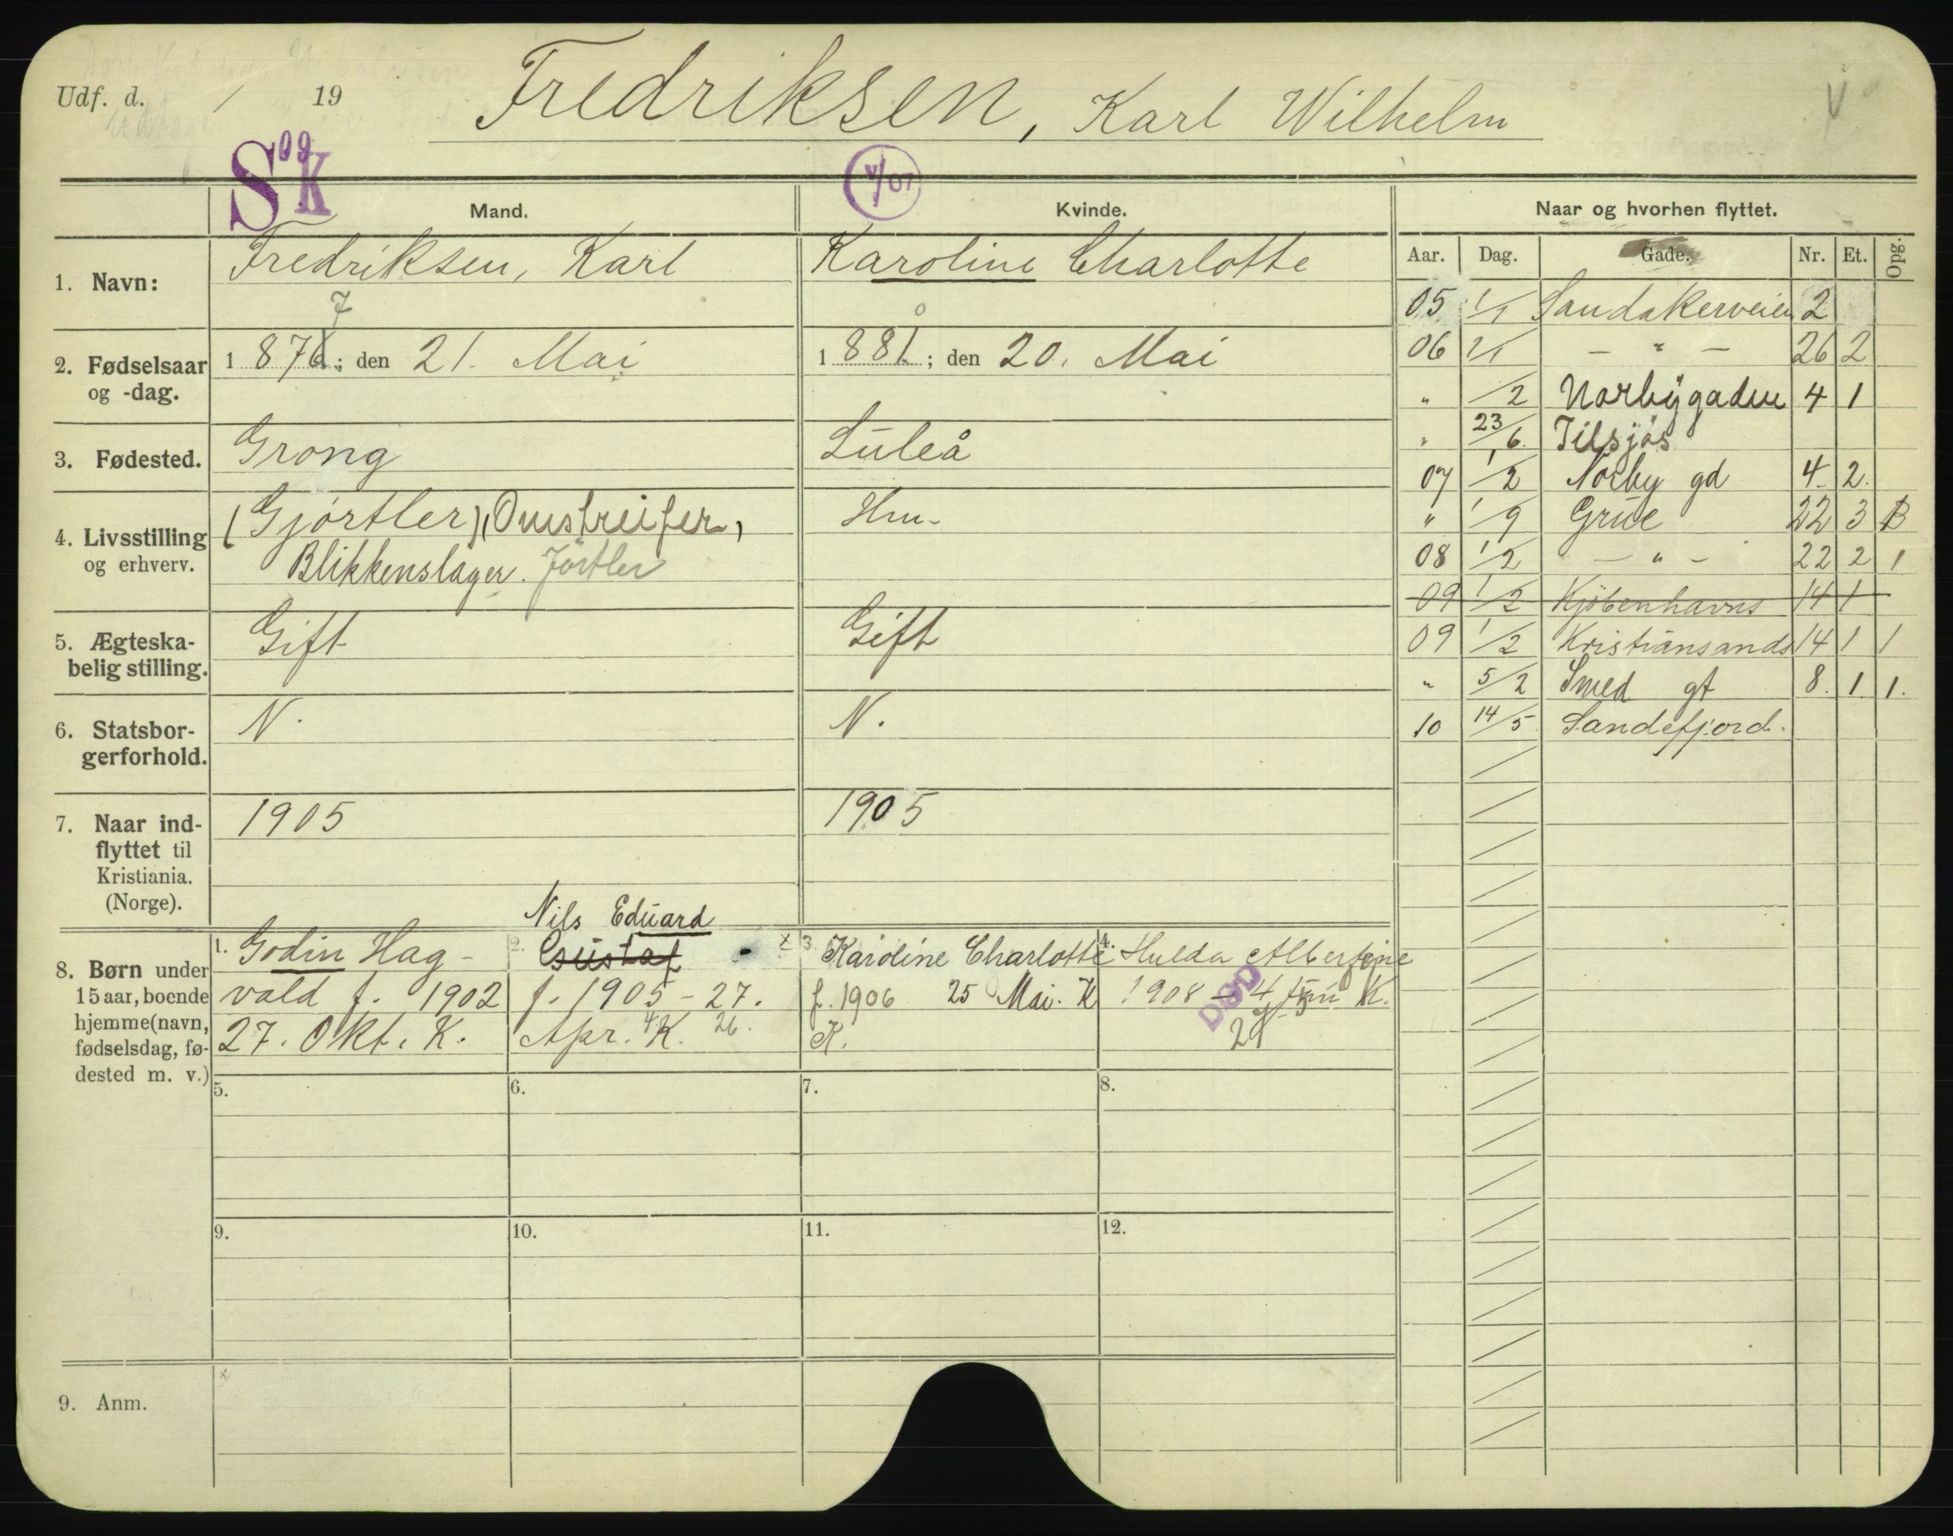 Udf. d. / 19
Fredriksen, Karl Wilhelm
V
S og K
V/07
Mand.
Kvinde.
Naar og hvorhen flyttet.
1. Navn:
Fredriksen, Karl
Karoline Charlotte
2. Fødselsaar og -dag.
7
1876; den 21. Mai
0
1881; den 20. Mai
3. Fødested.
Grong
Luleå
4. Livsstilling og erhverv.
(Gjørtler), Omstreifer,
Blikkenslager. Jørtler
Hm-
5. Ægteska-
belig stilling.
Gift
Gift
6. Statsbor-
gerforhold.
N.
N.
7. Naar ind-
flyttet til
Kristiania.
(Norge).
1905
1905
8. Børn under
15 aar, boende
hjemme (navn,
fødselsdag, fø-
dested m. v.)
1. Godin Hag-
vald f. 1902
27. Okt. K.
Nils Eduard
2. Gustaf x
f. 1905 - 27.
Apr. K. 26.
3. Karoline Charlotte
f. 1906 25 Mai. K
K.
4. Hulda Albertine
1908 - 4 Juni K.
DØD
5.
6.
7.
8.
9.
10.
11.
12.
9. Anm.
x
Aar. Dag. Gade. Nr. Et. Opg.
05 1/1 Sandakerveien 2
06 1/1 — " — 26 2
" /2 Norbygaden 4 1
" 23/6. Tilsjøs
07 1/2 Norby gd 4. 2.
" 1/9 Grüe 22 3 B
08 1/2 — " — 22 2 1
09 1/2 Kjøbenhavns 14 1
09 1/2 Kristiansands 14 1 1
" 5/2 Smed gt 8. 1. 1.
10 14/5 Sandefjord.